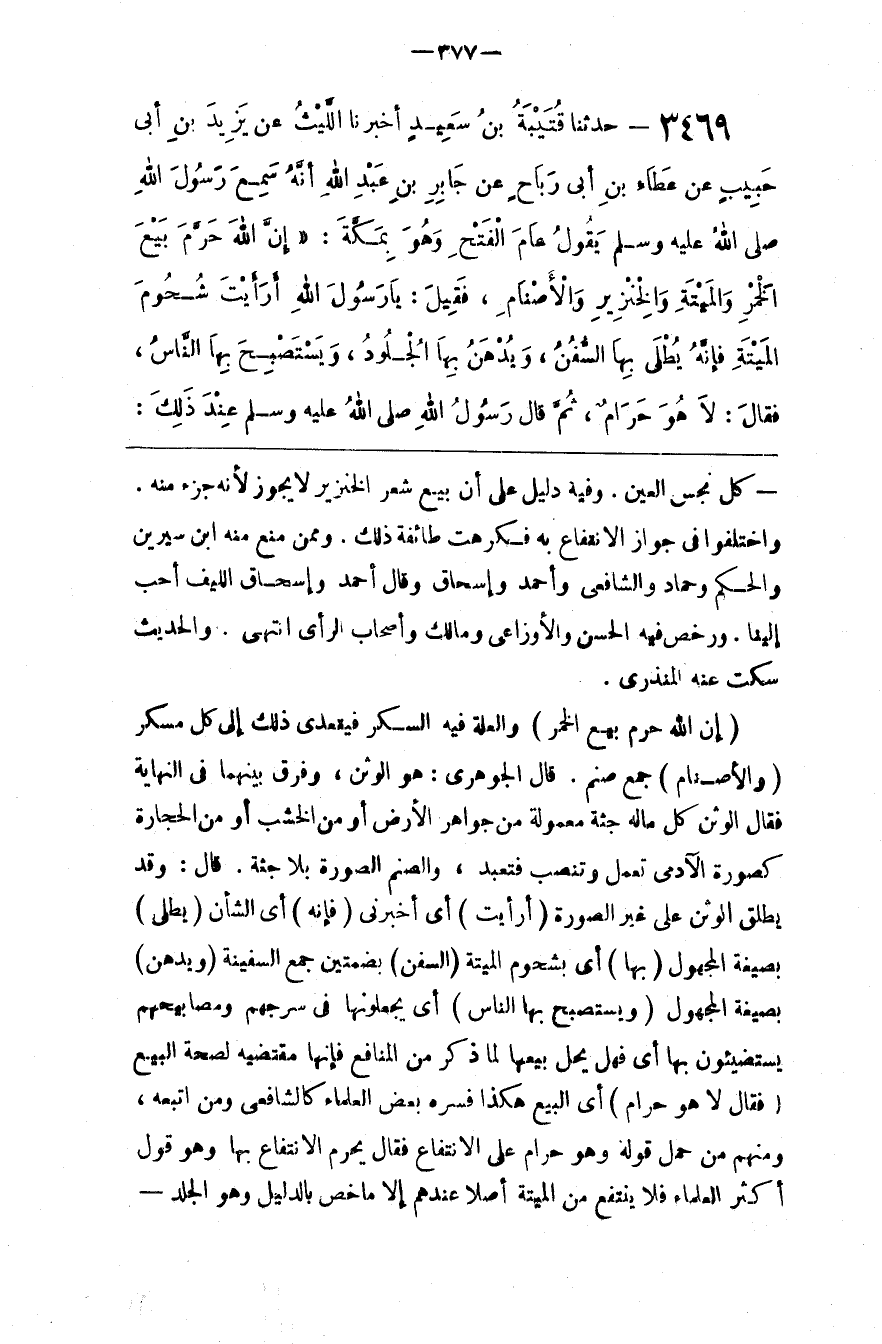 —٣٧٧—
٣٤٦٩ — حدثنا قُتَيْبَةُ بنُ سَعِيدٍ أخبرنا اللَّيْثُ عن يَزِيدَ بنِ أبى
حَبِيبٍ عن عَطَاءِ بنِ أبى رَبَاحٍ عن جَابِرِ بنِ عَبْدِ اللهِ أنَّهُ سَمِعَ رَسُولَ اللهِ
صلى اللهُ عليه وسلم يَقُولُ عَامَ الْفَتْحِ وَهُوَ بِمَكَّةَ : « إنَّ اللهَ حَرَّمَ بَيْعَ
الخَمْرِ وَالمَيْتَةِ وَالْخِنْزِيرِ وَالْأَصْنَامِ ، فَقِيلَ : يَارَسُولَ اللهِ أرَأَيْتَ شُحُومَ
المَيْتَةِ فإنَّهُ يُطْلَى بِهَا السُّفُنُ ، وَيُدْهَنُ بِهَا الْجُلُودُ ، وَيَسْتَصْبِحَ بِهَا النَّاسُ ،
فقالَ : لاَ هُوَ حَرَامٌ ، ثُمَّ قال رَسُولُ اللهِ صلى اللهُ عليه وسلم عِنْدَ ذَلِكَ :
— كل نجس العين . وفية دليل على أن بيع شعر الخنزير لايجوز لأنه جزء منه .
واختلفوا فى جواز الانتفاع به فكرهت طائفة ذلك . وممن منع منه ابن سيرين
والحكم وحماد والشافعى وأحمد وإسحاق وقال أحمد وإسحاق الليف أحب
إلينا . ورخص فيه الحسن والأوزاعى ومالك وأصحاب الرأى انتهى . والحديث
سكت عنه المنذرى .
( إن الله حرم بيع الخمر ) والعلة فيه السكر فيتعدى ذلك إلى كل مسكر
( والأصنام ) جمع صنم . قال الجوهرى : هو الوثن ، وفرق بينهما فى النهاية
فقال الوثن كل ماله جثة معمولة من جواهر الأرض أو من الخشب أو من الحجارة
كصورة الآدمى تعمل وتنصب فتعبد ، والصنم الصورة بلا جثة . قال : وقد
يطلق الوثن على غير الصورة ( أرأيت ) أى أخبرنى ( فإنه ) أى الشأن ( يطلى )
بصيغة المجهول ( بها ) أى بشحوم الميتة (السفن) بضمتين جمع السفينة (ويدهن)
بصيغة المجهول ( ويستصبح بها الناس ) أى يجعلونها فى سرجهم ومصابيحهم
يستضيئون بها أى فهل يحل بيعها لما ذكر من المنافع فإنها مقتضيه لصحة البيع
( فقال لا هو حرام ) أى البيع هكذا فسره بعض العلماء كالشافعى ومن اتبعه ،
ومنهم من حمل قولة وهو حرام على الانتفاع فقال يحرم الانتفاع بها وهو قول
أكثر العلماء فلا ينتفع من الميتة أصلا عندهم إلا ماخص بالدليل وهو الجلد —